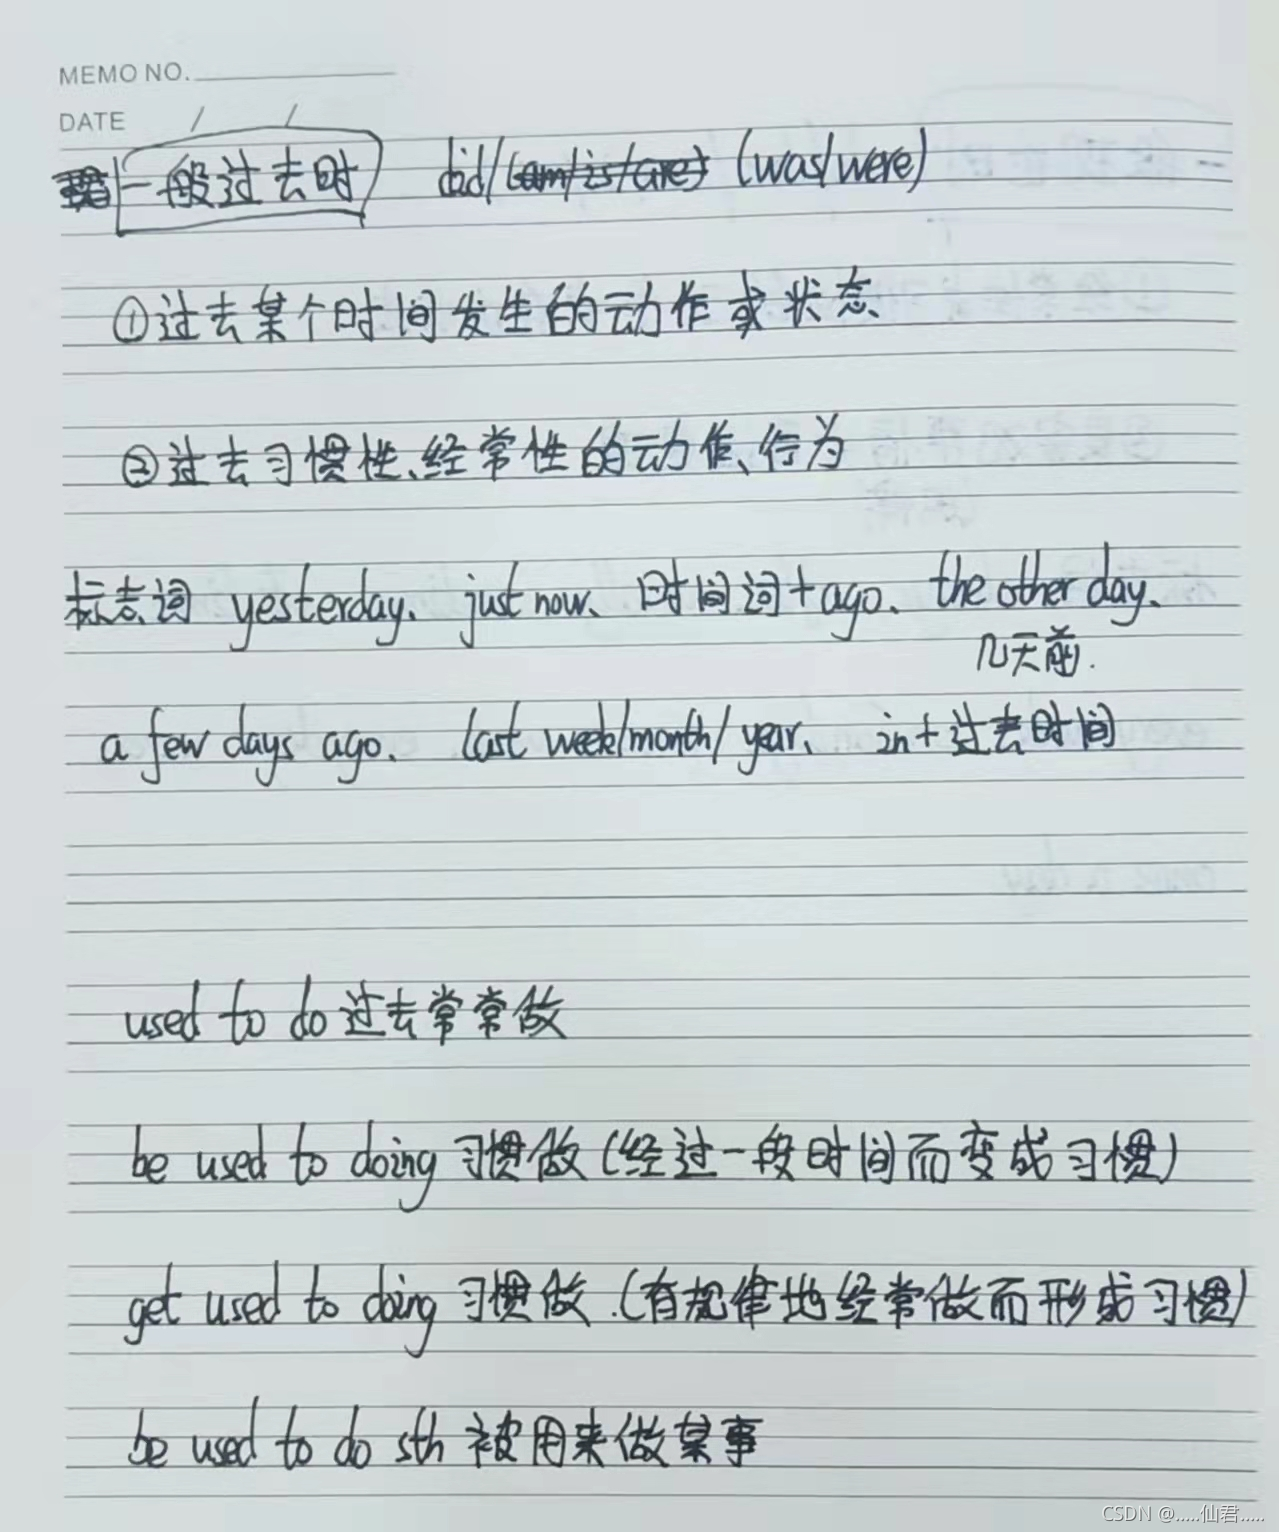 MEMO NO.
DATE / /
一般过去时 did/(am/is/are) (was/were)
①过去某个时间发生的动作或状态
②过去习惯性、经常性的动作、行为
标志词 yesterday、just now、时间词+ago、the other day、
几天前.
a few days ago、last week/month/year、in+过去时间
used to do 过去常常做
be used to doing 习惯做(经过一段时间而变成习惯)
get used to doing 习惯做.(有规律地经常做而形成习惯)
be used to do sth 被用来做某事
CSDN @.....仙君.....